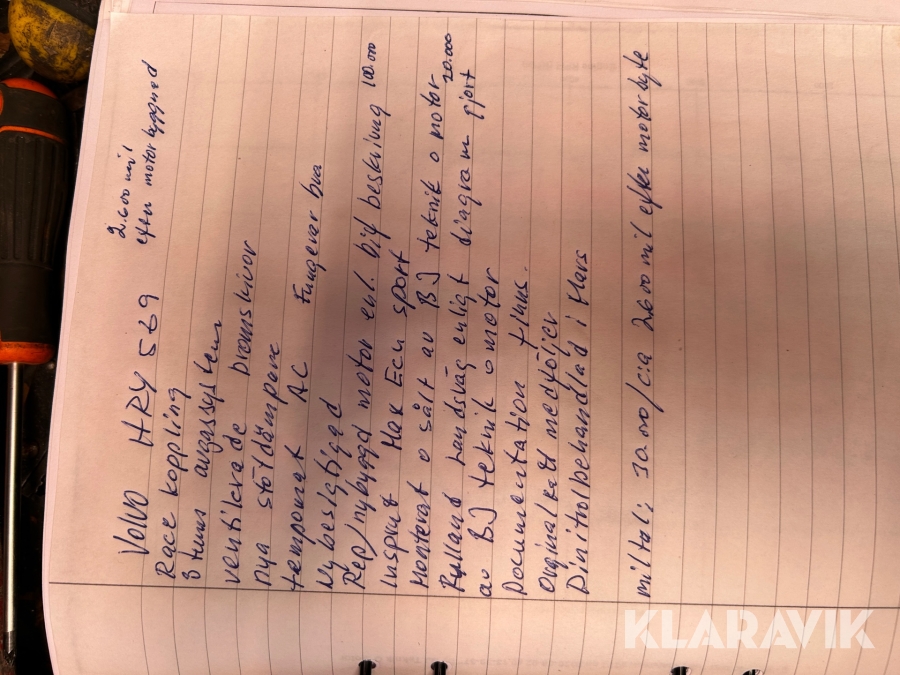 Volvo HRY 569
2.600 mil
efter motorbyggned
Race koppling
3 tums avgassystem
ventilerade bromskivor
nya stötdämpare
tempomat AC Fungerar bra
Ny besigtigad
Rep/nybyggd motor enl. bif beskrivning 100.000
Insprut Max Ecu sport
Monterat o sålt av BJ teknik o motor
Rullande landsväg enligt diagram gjort 20.000
av BJ teknik o motor
Documentation finns.
orginal ratt medföljer
Dinitrolbehandlad i Mars
miltal: 30.000/cia 2600 mil efter motorbyte
KLARAVIK